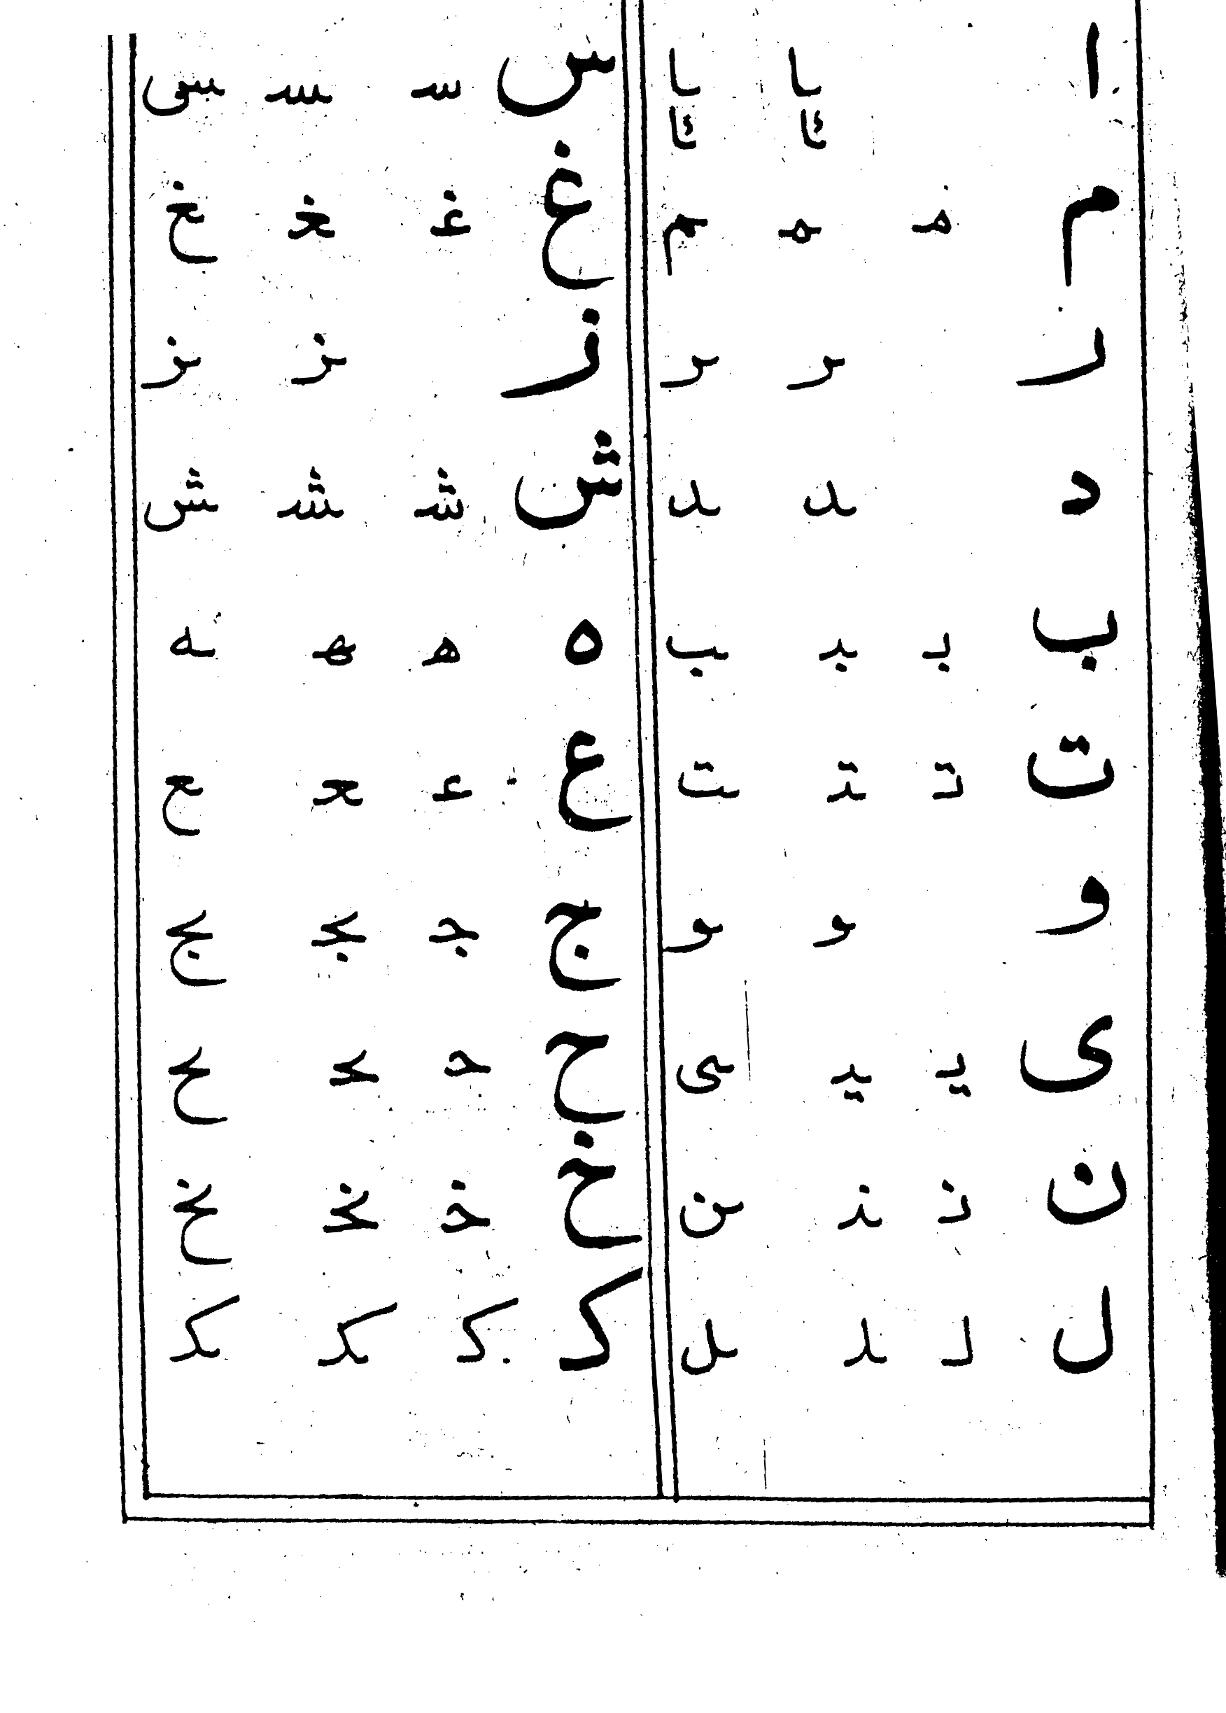 ا ـا ـا
ئا ئا
م مـ ـمـ ـم
ر ـر ـر
د ـد ـد
ب بـ ـبـ ـب
ت تـ ـتـ ـت
و ـو ـو
ى يـ ـيـ ـى
ن نـ ـنـ ـن
ل لـ ـلـ ـل
س سـ ـسـ ـس
غ غـ ـغـ ـغ
ز ـز ـز
ش شـ ـشـ ـش
ه هـ ـهـ ـه
ع عـ ـعـ ـع
ج جـ ـجـ ـج
ح حـ ـحـ ـح
خ خـ ـخـ ـخ
ک کـ ـکـ ـک